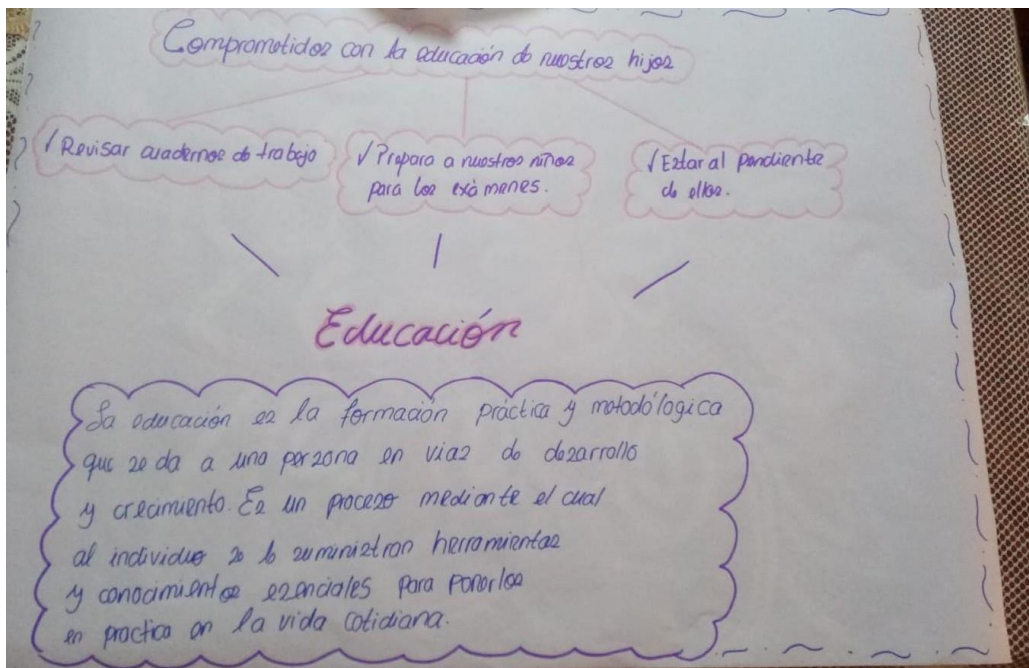 Comprometidos con la educación de nuestros hijos
✓ Revisar cuadernos de trabajo
✓ Preparo a nuestros niños
para los exámenes.
✓ Estar al pendiente
de ellos.
Educación
La educación es la formación práctica y metodólogica
que se da a una persona en vias de desarrollo
y crecimiento. Es un proceso mediante el cual
al individuo se le suministran herramientas
y conocimientos esenciales para ponerlos
en practica en la vida cotidiana.